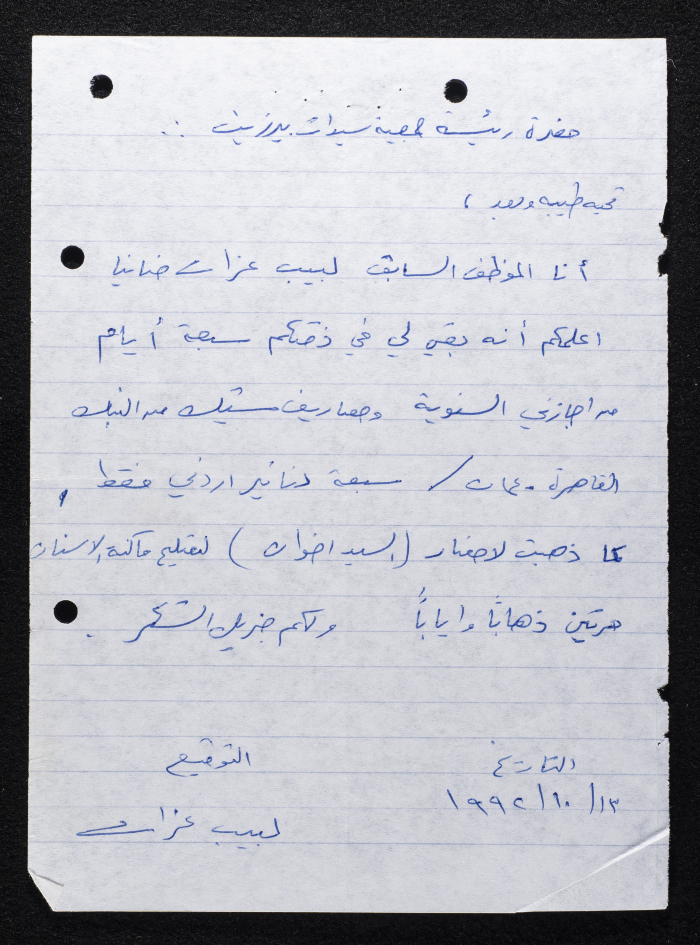 حضرة رئيسة جمعية سيدات بيرزيت
تحيه طيبه وبعد ،
أنا الموظف السابق لبيب عزات
اعلمكم أنه بقي لي في ذمتكم سبعة أيام
من اجازتي السنوية ومصاريف شيك من البنك
القاهرة عمان / سبعة دنانير اردني فقط
كما ذهبت لاحضار (السيد اخوان) لتصليح ماكنة الاسنان
مرتين ذهاباً واياباً ولكم جزيل الشكر .
التاريخ التوقيع
١٣/١٠/١٩٩٢ لبيب عزات